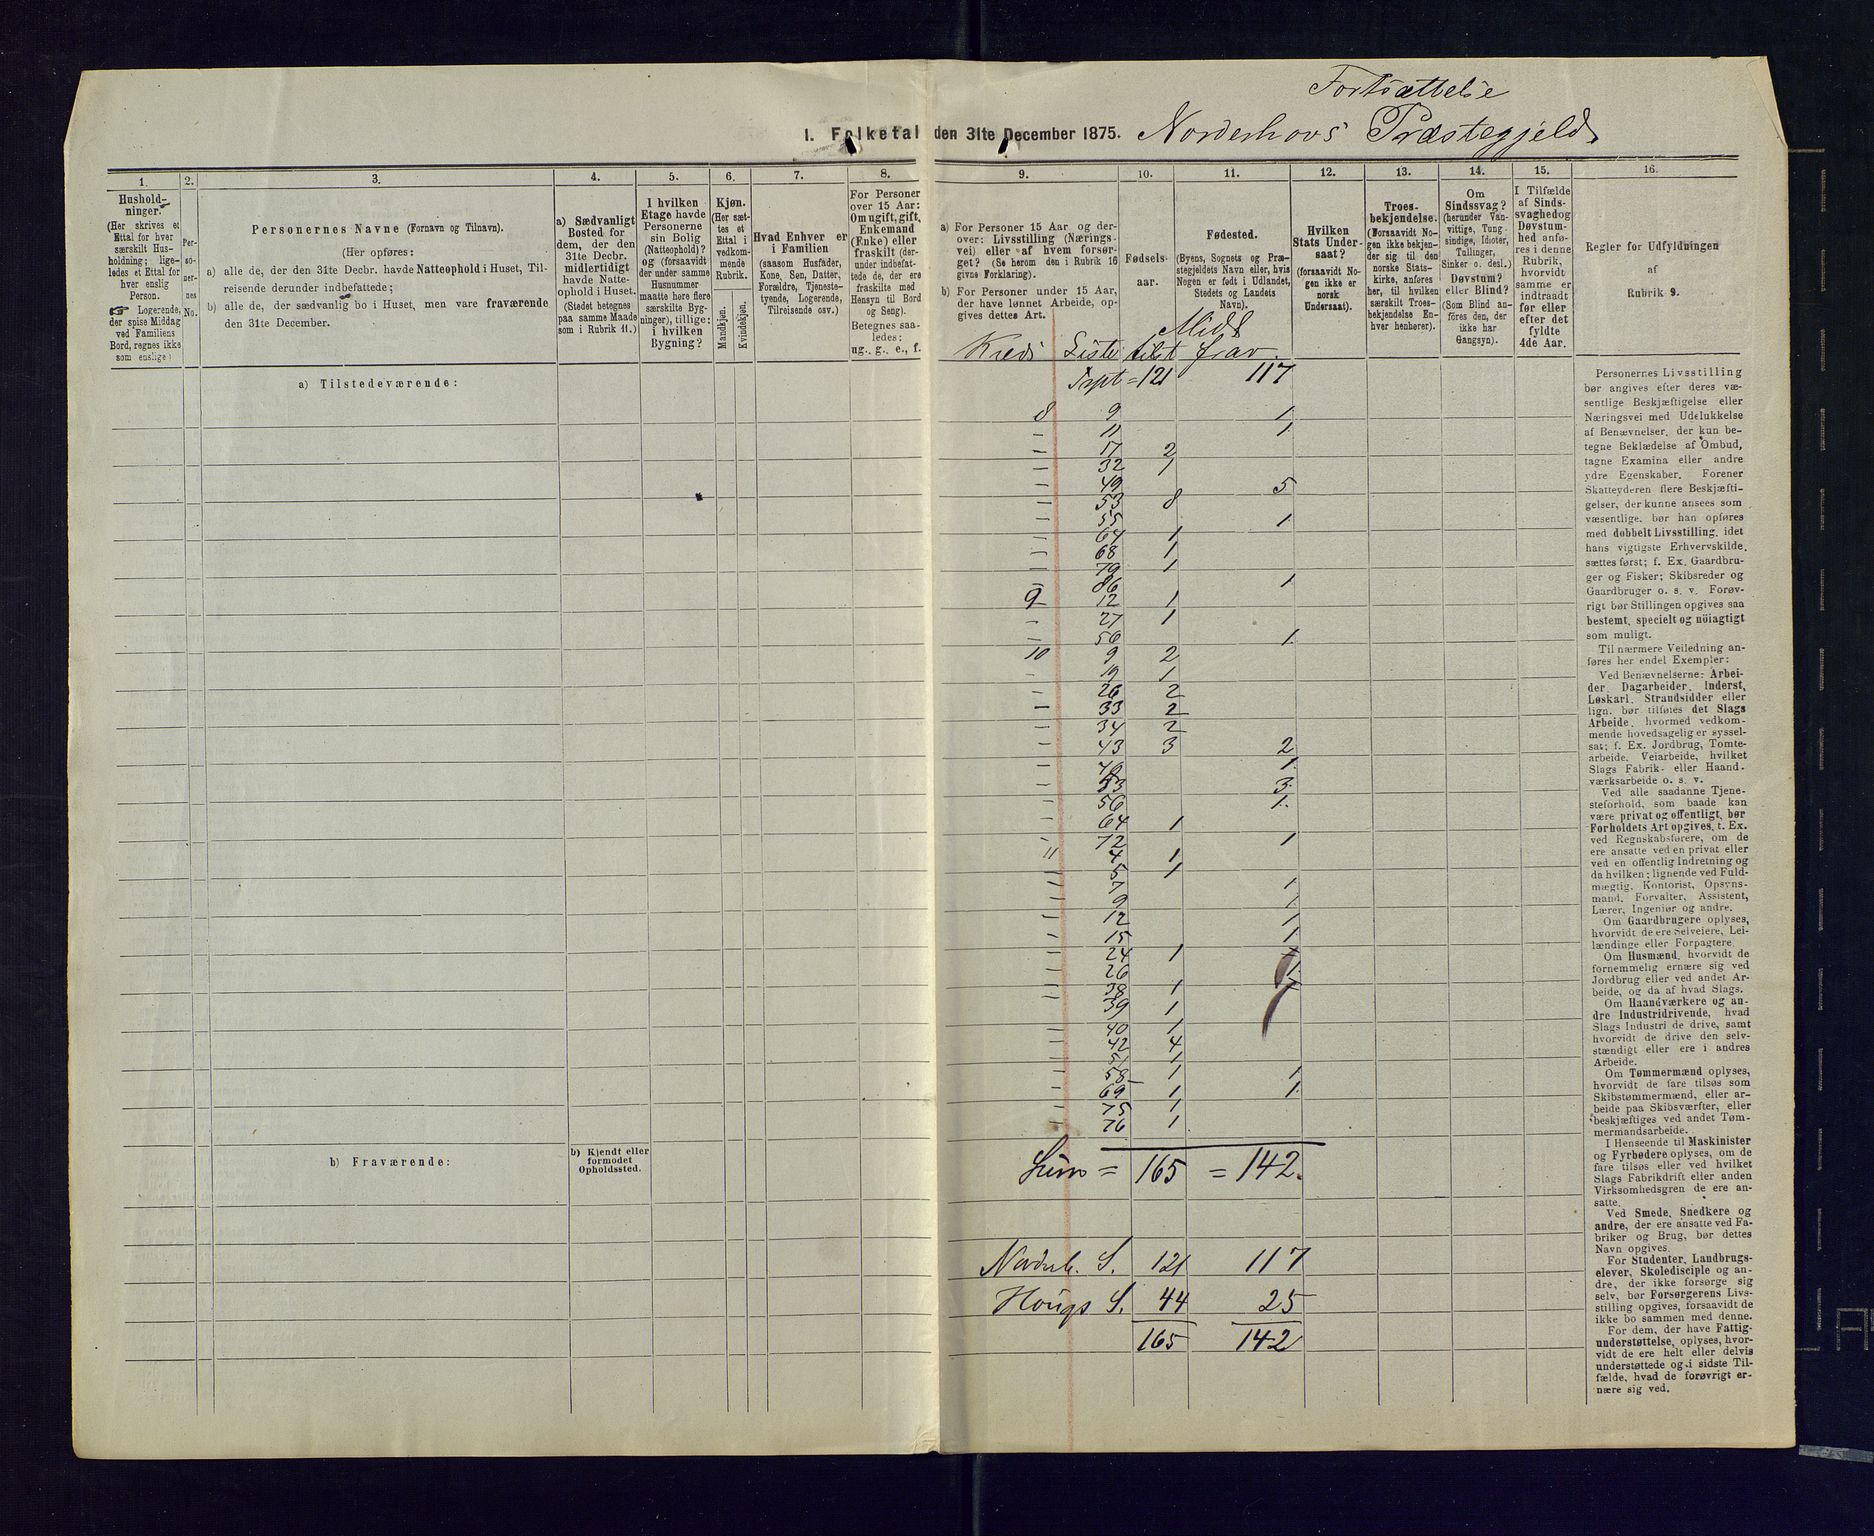 Fortsættelse
I. Folketal den 31te December 1875. Norderhovs Præstegjeld.
1.
Hushold-
ninger.
(Her skrives et
Ettal for hver
særskilt Hus-
holdning; lige-
ledes et Ettal for
hver enslig
Person.
☞ Logerende,
der spise Middag
ved Familiens
Bord, regnes ikke
som enslige)
2.
Per-
so-
ner-
nes
No.
3.
Personernes Navne (Fornavn og Tilnavn).
(Her opføres:
a) alle de, der den 31te Decbr. havde Natteophold i Huset, Til-
reisende derunder indbefattede;
b) alle de, der sædvanlig bo i Huset, men vare fraværende
den 31te December.
4.
a) Sædvanligt
Bosted for
dem, der den
31te Decbr.
midlertidigt
havde Natte-
ophold i Huset.
(Stedet betegnes
paa samme Maade
som i Rubrik 11.)
5.
I hvilken
Etage havde
Personerne
sin Bolig
(Natteophold)?
og (forsaavidt
der under samme
Husnummer
maatte høre flere
særskilte Byg-
ninger), tillige:
i hvilken
Bygning?
6.
Kjøn.
(Her sæt-
tes et
Ettal i
vedkom-
mende
Rubrik.
Mandkjøn.
Kvindekjøn.
7.
Hvad Enhver er
i Familien
(saasom Husfader,
Kone, Søn, Datter,
Forældre, Tjeneste-
tyende, Logerende,
Tilreisende osv.)
8.
For Personer
over 15 Aar:
Om ugift, gift,
Enkemand
(Enke) eller
fraskilt (der-
under indbefat-
tede de, der ere
fraskilte med
Hensyn til Bord
og Seng).
Betegnes saa-
ledes:
ug., g., e., f.
9.
a) For Personer 15 Aar og der-
over: Livsstilling (Nærings-
vei) eller af hvem forsør-
get? (Se herom den i Rubrik 16
givne Forklaring).
b) For Personer under 15 Aar,
der have lønnet Arbeide, op-
gives dettes Art.
10.
Fødsels-
aar.
11.
Fødested.
(Byens, Sognets og Præ-
stegjeldets Navn eller, hvis
Nogen er født i Udlandet,
Stedets og Landets
Navn).
12.
Hvilken
Stats Under-
saat?
(forsaavidt No-
gen ikke er
norsk
Undersaat).
13.
Troes-
bekjendelse.
(Forsaavidt No-
gen ikke bekjen-
der sig til den
norske Stats-
kirke, anføres
her, til hvilken
særskilt Troes-
bekjendelse En-
hver henhører).
14.
Om
Sindssvag?
(herunder Van-
vittige, Tung-
sindige, Idioter,
Tullinger,
Sinker o. desl.)
Døvstum?
eller Blind?
(Som Blind an-
føres den, der
ikke har
Gangsyn).
15.
I Tilfælde
af Sinds-
svaghed og
Døvstum-
hed anfø-
res i denne
Rubrik,
hvorvidt
samme er
indtraadt
før eller
efter det
fyldte
4de Aar.
16.
Regler for Udfyldningen
af
Rubrik 9.
a) Tilstedeværende:
Midl
Kreds Liste tilst frav.
Trspt = 121 117
8 9 1
" 11 1
" 17 2
" 32 1
" 49 5
" 53 8
" 55 1
" 64 1
" 68 1
" 79 1
" 86 1
9 12 1
" 27 1
" 56 1
10 9 2
" 19 1
" 26 2
" 33 2
" 34 2
" 43 3 2
" 1
" 53 3
" 56 1
" 64 1
" 72 1
11 4 1
" 5 1
" 7 1
" 9 1
" 12 1
" 15 1
" 24 1
" 26 1
" 38 1
" 39 1
" 40 1
" 42 4
" 51 1
" 58 1 1
" 69 1 1
" 75 1
" 76 1
Sum = 165 = 142.
b) Fraværende:
b) Kjendt eller
formodet
Opholdssted.
Norderh. S. 121 117
Hougs S. 44 25
165 142
Personernes Livsstilling
bør angives efter deres væ-
sentlige Beskjæftigelse eller
Næringsvei med Udelukkelse
af Benævnelser, der kun be-
tegne Beklædelse af Ombud,
tagne Examina eller andre
ydre Egenskaber. Forener
Skatteyderen flere Beskjæfti-
gelser, der kunne ansees som
væsentlige, bør han opføres
med dobbelt Livsstilling, idet
hans vigtigste Erhvervskilde
sættes først; f. Ex. Gaardbru-
ger og Fisker; Skibsreder og
Gaardbruger o. s. v. Forøv-
rigt bør Stillingen opgives saa
bestemt, specielt og nöiagtigt
som muligt.
Til nærmere Veiledning an-
føres her endel Exempler:
Ved Benævnelserne: Arbei-
der, Dagarbeider, Inderst,
Løskarl, Strandsidder eller
lign. bør tilføies det Slags
Arbeide, hvormed vedkom-
mende hovedsagelig er syssel-
sat; f. Ex. Jordbrug, Tomte-
arbeide, Veiarbeide, hvilket
Slags Fabrik- eller Haand-
værksarbeide o. s. v.
Ved alle saadanne Tjene-
steforhold, som baade kan
være privat og offentligt, bør
Forholdets Art opgives, t. Ex.
ved Regnskabsførere, om de
ere ansatte ved en privat eller
ved en offentlig Indretning og
da hvilken; lignende ved Fuld-
mægtig, Kontorist, Opsyns-
mand, Forvalter, Assistent,
Lærer, Ingeniør og andre.
Om Gaardbrugere oplyses,
hvorvidt de ere Selveiere, Lei-
lændinge eller Forpagtere.
Om Husmænd, hvorvidt de
fornemmelig ernære sig ved
Jordbrug eller ved andet Ar-
beide, og da af hvad Slags.
Om Haandværkere og an-
dre Industridrivende, hvad
Slags Industri de drive, samt
hvorvidt de drive den selv-
stændigt eller ere i andres
Arbeide.
Om Tømmermænd oplyses,
hvorvidt de fare tilsøs som
Skibstømmermænd, eller ar-
beide paa Skibsværfter, eller
beskjæftiges ved andet Tøm-
mermandsarbeide.
I Henseende til Maskinister
og Fyrbødere oplyses, om de
fare tilsøs eller ved hvilket
Slags Fabrikdrift eller anden
Virksomhedsgren de ere an-
satte.
Ved Smede, Snedkere og
andre, der ere ansatte ved Fa-
briker og Brug, bør dettes
Navn opgives.
For Studenter, Landbrugs-
elever, Skoledisciple og an-
dre, der ikke forsørge sig
selv, bør Forsørgerens Livs-
stilling opgives, forsaavidt de
ikke bo sammen med denne.
For dem, der have Fattig-
understøttelse, oplyses, hvor-
vidt de ere helt eller delvis
understøttede og i sidste Til-
fælde, hvad de forøvrigt er-
nære sig ved.